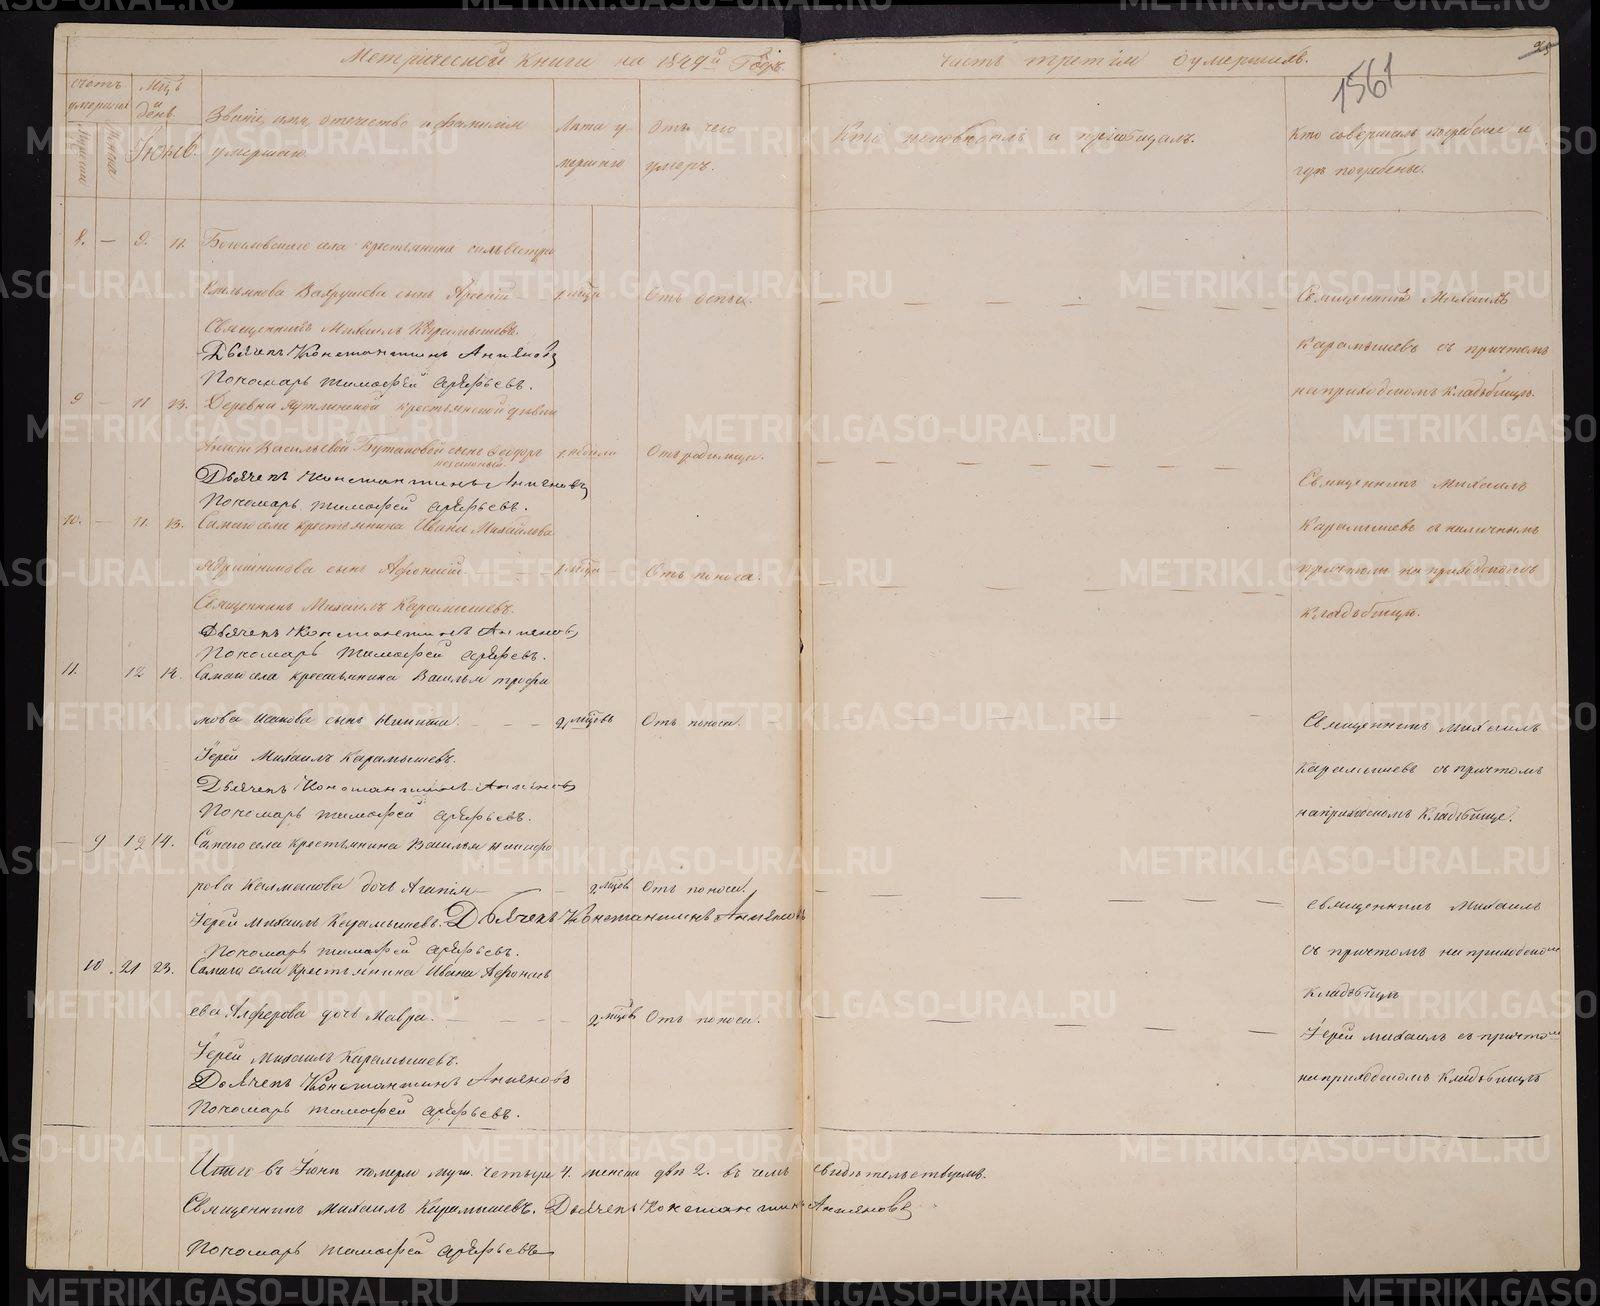 Метрической книги на 1849й Годъ.
часть третія о умершихъ.
1561
счетъ умершихъ
Мцъ и день
Званіе, имя, отечество и фамилія умершаго
Лѣта умершаго
отъ чего умеръ.
Кто исповѣдалъ и пріобщалъ.
Кто совершалъ погребеніе и гдѣ погребены.
Іюнь.
8. — 9. 11. Богословскаго села крестьянина сильвестра
Вахрушева сынъ Арсеній — 1 мѣца Отъ оспы.
Священникъ Михаилъ Карамышевъ.
Дьячекъ Константинъ
Пономарь тимофей арефьевъ.
Священникъ Михаилъ
Карамышевъ съ причтомъ
на приходскомъ кладбищѣ.
9 — 11 13. Деревни крестьянской дѣвки
Васильевой сынъ Ѳеодоръ 1 недѣли Отъ родимца.
незаконный.
Дьячекъ Константинъ
Пономарь тимофей арефьевъ.
Священникъ Михаилъ
Карамышевъ съ наличнымъ
причтомъ на приходскомъ
кладбищѣ.
10. — 11. 13. Самаго села крестьянина Ивана Михайлова
сынъ Афонасій. 1 мѣца Отъ поноса.
Священникъ Михаилъ Карамышевъ.
Дьячекъ Константинъ
Пономарь тимофей арефьевъ.
11. 12 14. Самаго села крестьянина Василья трофи
мова сынъ Никита. 2 мцовъ Отъ поноса.
Іерей Михаилъ Карамышевъ.
Дьячекъ Константинъ
Пономарь тимофей арефьевъ.
Священникъ Михаилъ
Карамышевъ съ причтомъ
на приходскомъ кладбище.
— 9 12 14. Самаго села крестьянина Василья никифо
рова Калмакова дочь Агапія — 2 мцовъ Отъ поноса.
Іерей михаилъ Карамышевъ. Дьячекъ Константинъ
Пономарь тимофей арефьевъ.
священникъ Михаилъ
съ причтомъ на приходском
кладбищѣ
10. 21 23. Самаго села крестьянина Ивана Афонась
ева Алферова дочь Мавра. 2 мцовъ Отъ поноса.
Іерей михаилъ Карамышевъ.
Дьячекъ Константинъ
Пономарь тимофей арефьевъ.
Іерей михаилъ съ причтом
на приходскомъ кладбищѣ
Итого въ Іюнѣ померло муж. четыре 4. женска двѣ 2. въ чемъ свидѣтельствуемъ.
Священникъ Михаилъ Карамышевъ. Дьячекъ Константинъ
Пономарь тимофей арефьевъ
METRIKI.GASO-URAL.RU